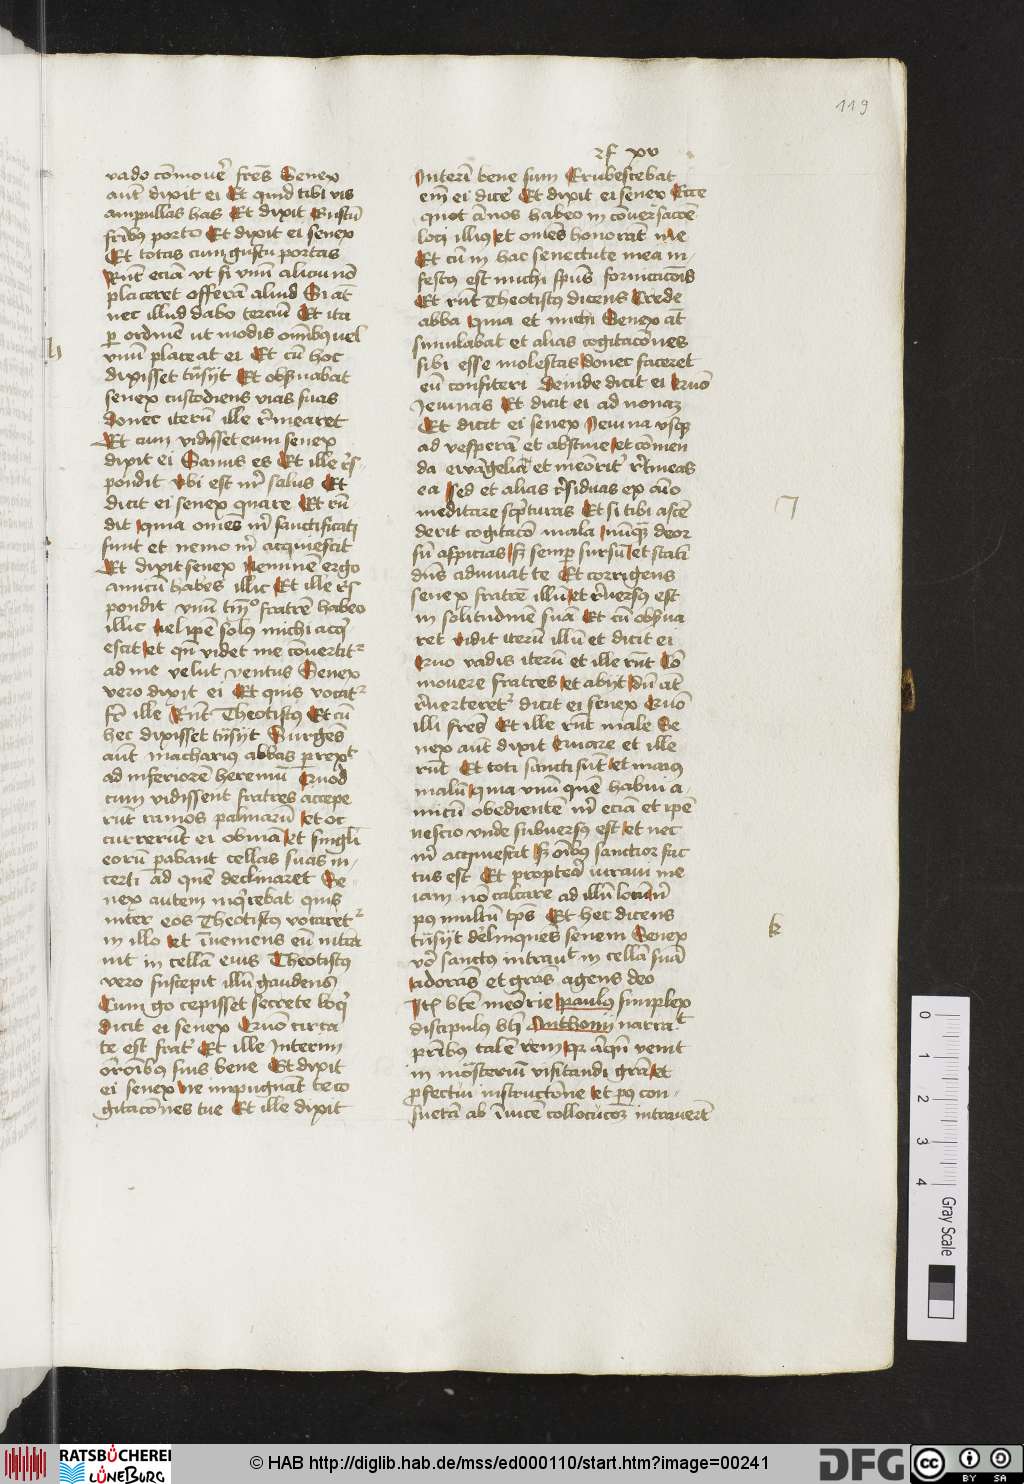 119
rf xv
vado cōmovē frēs Senex
aut̄ dixit ei Et quid tibi vis
ampullas has Et dixit Gustū
frībus porto Et dixit ei senex
Et totas cum gustu portas
Rn̄t eciā ut si vnū alicui nō
placeret offerā aliud Si at̄
nec illud dabo terciū Et ita
per ordinē ut modis omībus uel
vnū placeat ei Et cū hoc
dixisset tn̄sijt Et obseruabat
senex custodiens vias suas
donec iterū ille r̄mearet
Et cum vidisset eum senex
dixit ei Sanus es Et ille r̄s-
pondit Vbi est m̄ salus Et
dicit ei senex quare Et rn̄
dit quia om̄es m̄ sanctificati
sunt et nemo m̄ acquiescit
Et dixit senex neminē ergo
amicū habes illic Et ille r̄s
pondit vnū tm̄o fratrē habeo
illic uel ipē solus michi acq
escit et qn̄ videt me cōvertit
ad me velut ventus Senex
vero dixit ei Et quis vocat
fr̄ ille Rn̄t Theotistus Et cū
hec dixisset tn̄sijt Surgēs
aut̄ macharius abbas perrexit
ad inferiorē heremū Quod
cum vidissent fratres accepe
rūt ramos palmarū et oc
currerūt ei obviā et singli
eorū parabant cellas suas in-
certi ad quē declinaret Se-
nex autem inq̄rebat quis
inter eos Theotistus vocaret
in illo et īnveniens eū intra
uit in cellā eius Theotistus
vero suscepit illū gaudens
Cum go cepisset secrete loq̄
dicit ei senex Quō circa
te est frat̄ Et ille Interim
orōibus suis bene Et dixit
ei senex Ne impugnāt te co
gitacōnes tue Et ille dixit
Interī bene sum Erubescebat
em̄ ei dicē Et dixit ei senex Ecce
quot ānos habeo in cōversacōe
loci illius et om̄es honorāt me
Et cū in hac senectute mea in-
festus est michi sp̄us fornicacōis
Et rn̄t Theotistus dicens Crede
abba quia et michi Senex at̄
simulabat et alias cogitacōnes
sibi esse molestas donec faceret
eū confiteri Deinde dicit ei Quō
Jeiunas Et dicit ei ad nonaz
Et dicit ei senex Jeiuna usq
ad vesperā et abstine et cōmen
da ewāgelia et memorit̄ r̄tineas
ea Sed et alias r̄siduas ex aīo
meditare sc̄pturas Et si tibi ascē
derit cogitacō mala nūq̄ deor
sū aspicias sz semp̄ sursū et stati
dn̄s adiuuat te Et corrigens
senex fratrē illū et r̄versus est
in solitudinē suā Et cū obserua
ret vidit iterū illū et dicit ei
Quo vadis iterū et ille rn̄t Cō
movere fratres et abijt dū at̄
r̄verteret dicit ei senex Quō
illi frēs Et ille rn̄t male Se
nex aut̄ dixit Quare et ille
rn̄t Et toti sancti sūt et maius
malū quia vnū quē habui a-
micū obedientē m̄ eciā et ipē
nescio vnde subuersus est et nec
m̄ acquiescit sz oībus sanctior fac
tus est Et propterea iuraui me
iam nō calcare ad illū locū n̄
post multū tp̄s Et hec dicens
tn̄sijt delinquēs senem Senex
vō sanctus intravit in cellā suā
adorās et grās agens deo
Itē bt̄e meōrie paulus simplex
discipulus bt̄i Anthonij narrat
prībus talē rem qz aliqn̄ venit
in mōsteriū visitandi grā et
perfectui instructōne et post con-
suetā ab īnvicē collocūcōz intraverūt
h
k
0 1 2 3 4
Gray Scale
RATSBÜCHEREI
LÜNEBURG
© HAB http://diglib.hab.de/mss/ed000110/start.htm?image=00241
DFG
cc BY SA